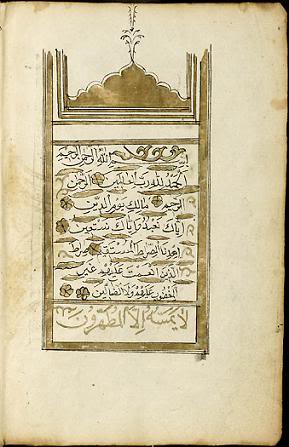 بسم الله الرحمن الرحيم
الحمد لله رب العالمين الرحمن
الرحيم مالك يوم الدين
اياك نعبد واياك نستعين
اهدنا الصراط المستقيم صراط
الذين انعمت عليهم غير
المغضوب عليهم ولا الضالين
لا يمسه إلا المطهرون